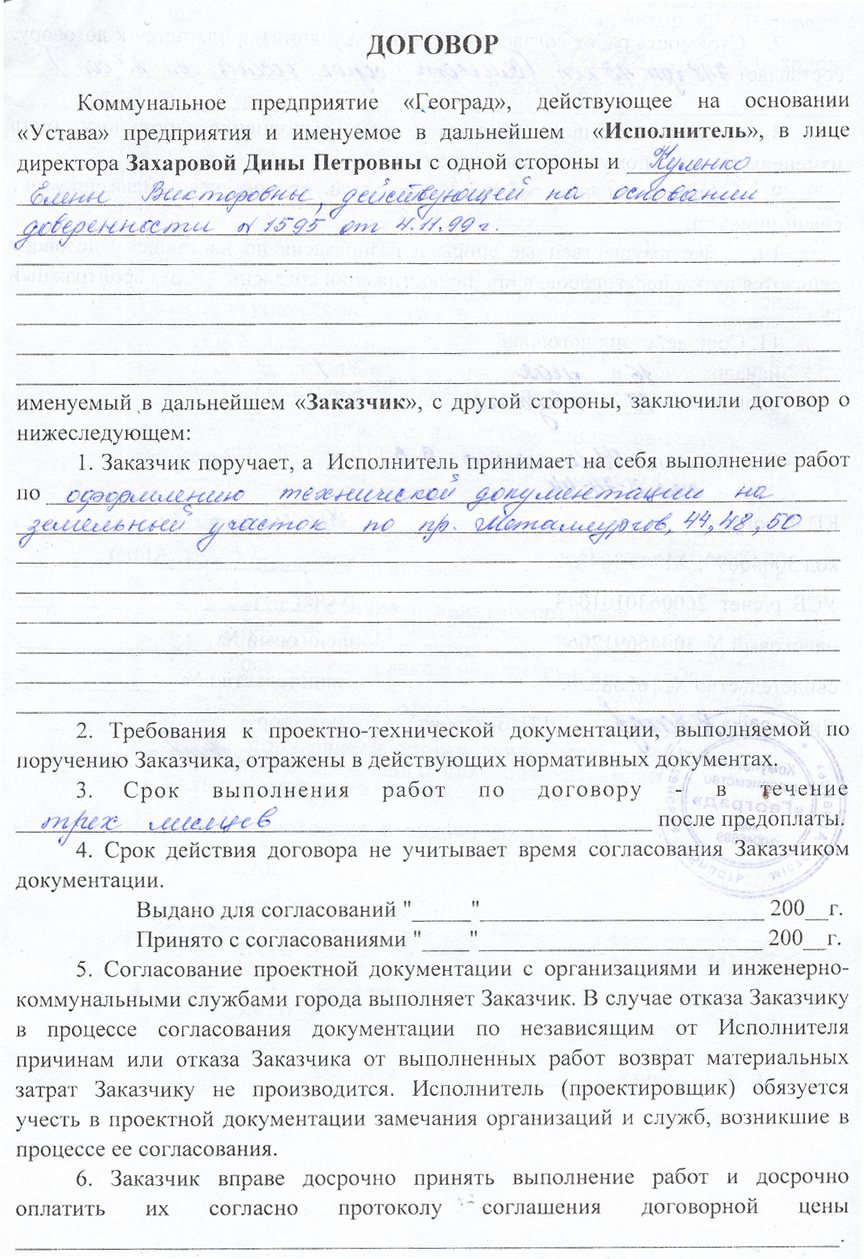 ДОГОВОР
Коммунальное предприятие «Географ», действующее на основании
«Устава» предприятия и именуемое в дальнейшем «Исполнитель», в лице
директора Захаровой Дины Петровны с одной стороны и Куленко
Елены Викторовны, действующей на основании
доверенности N 1595 от 4.11.99г.
именуемый в дальнейшем «Заказчик», с другой стороны, заключили договор о
нижеследующем:
1. Заказчик поручает, а Исполнитель принимает на себя выполнение работ
по оформлению технической документации на
земельный участок по пр. Металлургов, 44, 48, 50
2. Требования к проектно-технической документации, выполняемой по
поручению Заказчика, отражены в действующих нормативных документах.
3. Срок выполнения работ по договору - в течение
трех месяцев после предоплаты.
4. Срок действия договора не учитывает время согласования Заказчиком
документации.
Выдано для согласований "_____"________________________ 200__г.
Принято с согласованиями "____"________________________ 200__г.
5. Согласование проектной документации с организациями и инженерно-
коммунальными службами города выполняет Заказчик. В случае отказа Заказчику
в процессе согласования документации по независящим от Исполнителя
причинам или отказа Заказчика от выполненных работ возврат материальных
затрат Заказчику не производится. Исполнитель (проектировщик) обязуется
учесть в проектной документации замечания организаций и служб, возникшие в
процессе ее согласования.
6. Заказчик вправе досрочно принять выполнение работ и досрочно
оплатить их согласно протоколу соглашения договорной цены